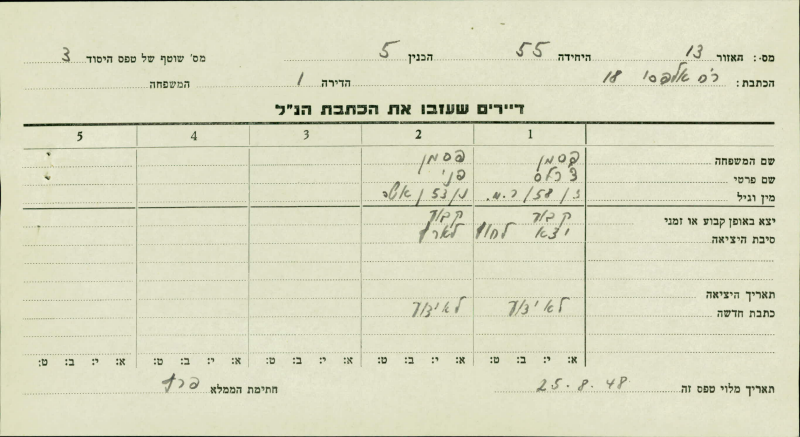 מס׳: האזור 13 היחידה 55 הבנין 5 מס׳ שוטף של טפס היסוד 3
הכתבת: רח׳ אלפסי 18 הדירה 1 המשפחה
דיירים שעזבו את הכתבת הנ״ל
1 2 3 4 5
שם המשפחה פסמן פסמן
שם פרטי צ׳רלס פני
מין וגיל ז/ 58/ נ/ 53/ אשה
יצא באופן קבוע או זמני קבוע קבוע
סיבת היציאה יצא לחוץ לארץ
תאריך היציאה
כתבת חדשה לא ידוע לא ידוע
א: י: ב: ט: א: י: ב: ט: א: י: ב: ט: א: י: ב: ט: א: י: ב: ט:
תאריך מלוי טפס זה 25.8.48 חתימת הממלא